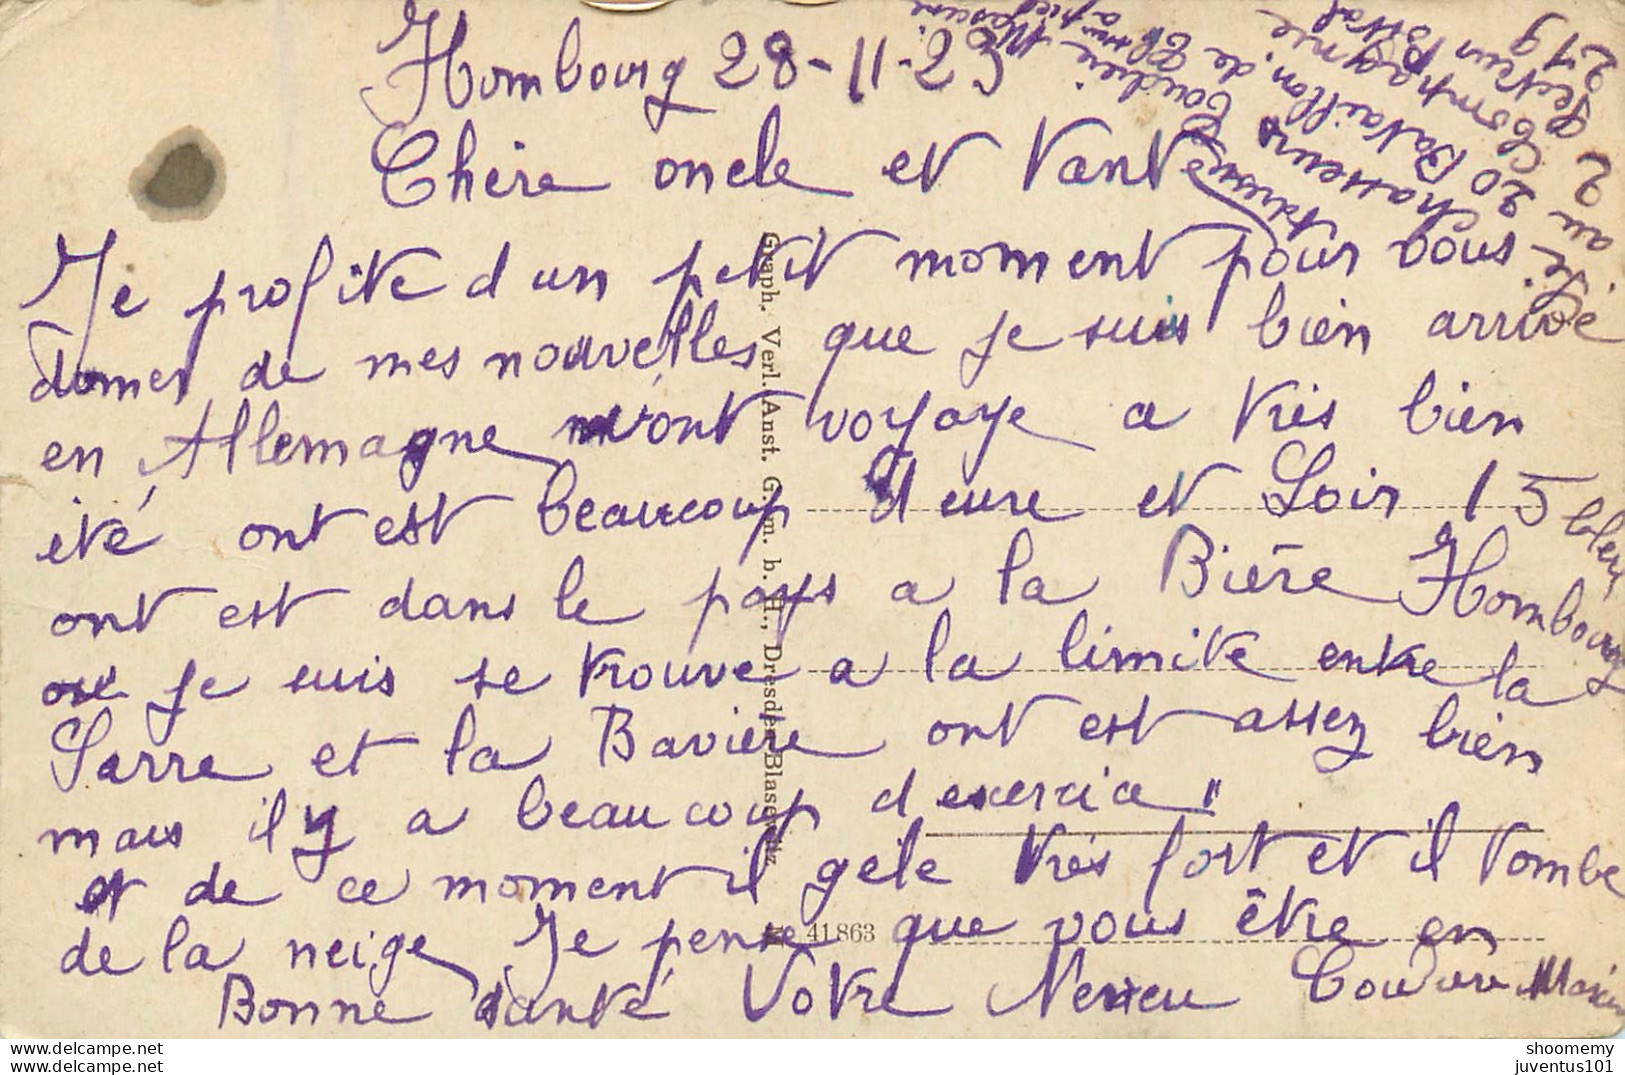 Hombourg 28-11-25
Chère oncle et tante
Je profite d un petit moment pour vous
donner de mes nouvelles que je suis bien arrivé
en Allemagne mont voyage a très bien
été ont est beaucoup d eure et Loir 15 bleu
ont est dans le pays a la Bière Hombourg
ou je suis se trouve a la limite entre la
Sarre et la Bavière ont est assez bien
mais il y a beaucoup d exercice
et de ce moment il gèle très fort et il tombe
de la neige Je pense que vous être en
Bonne santé Votre Neveu
Adresse
Chasseurs
20 Bataillon de
2 Compagnie
Secteur Postal
219
Graph. Verl. Anst. G. m. b. H., Dresden-Blasewitz
41863
shoomemy
juventus101